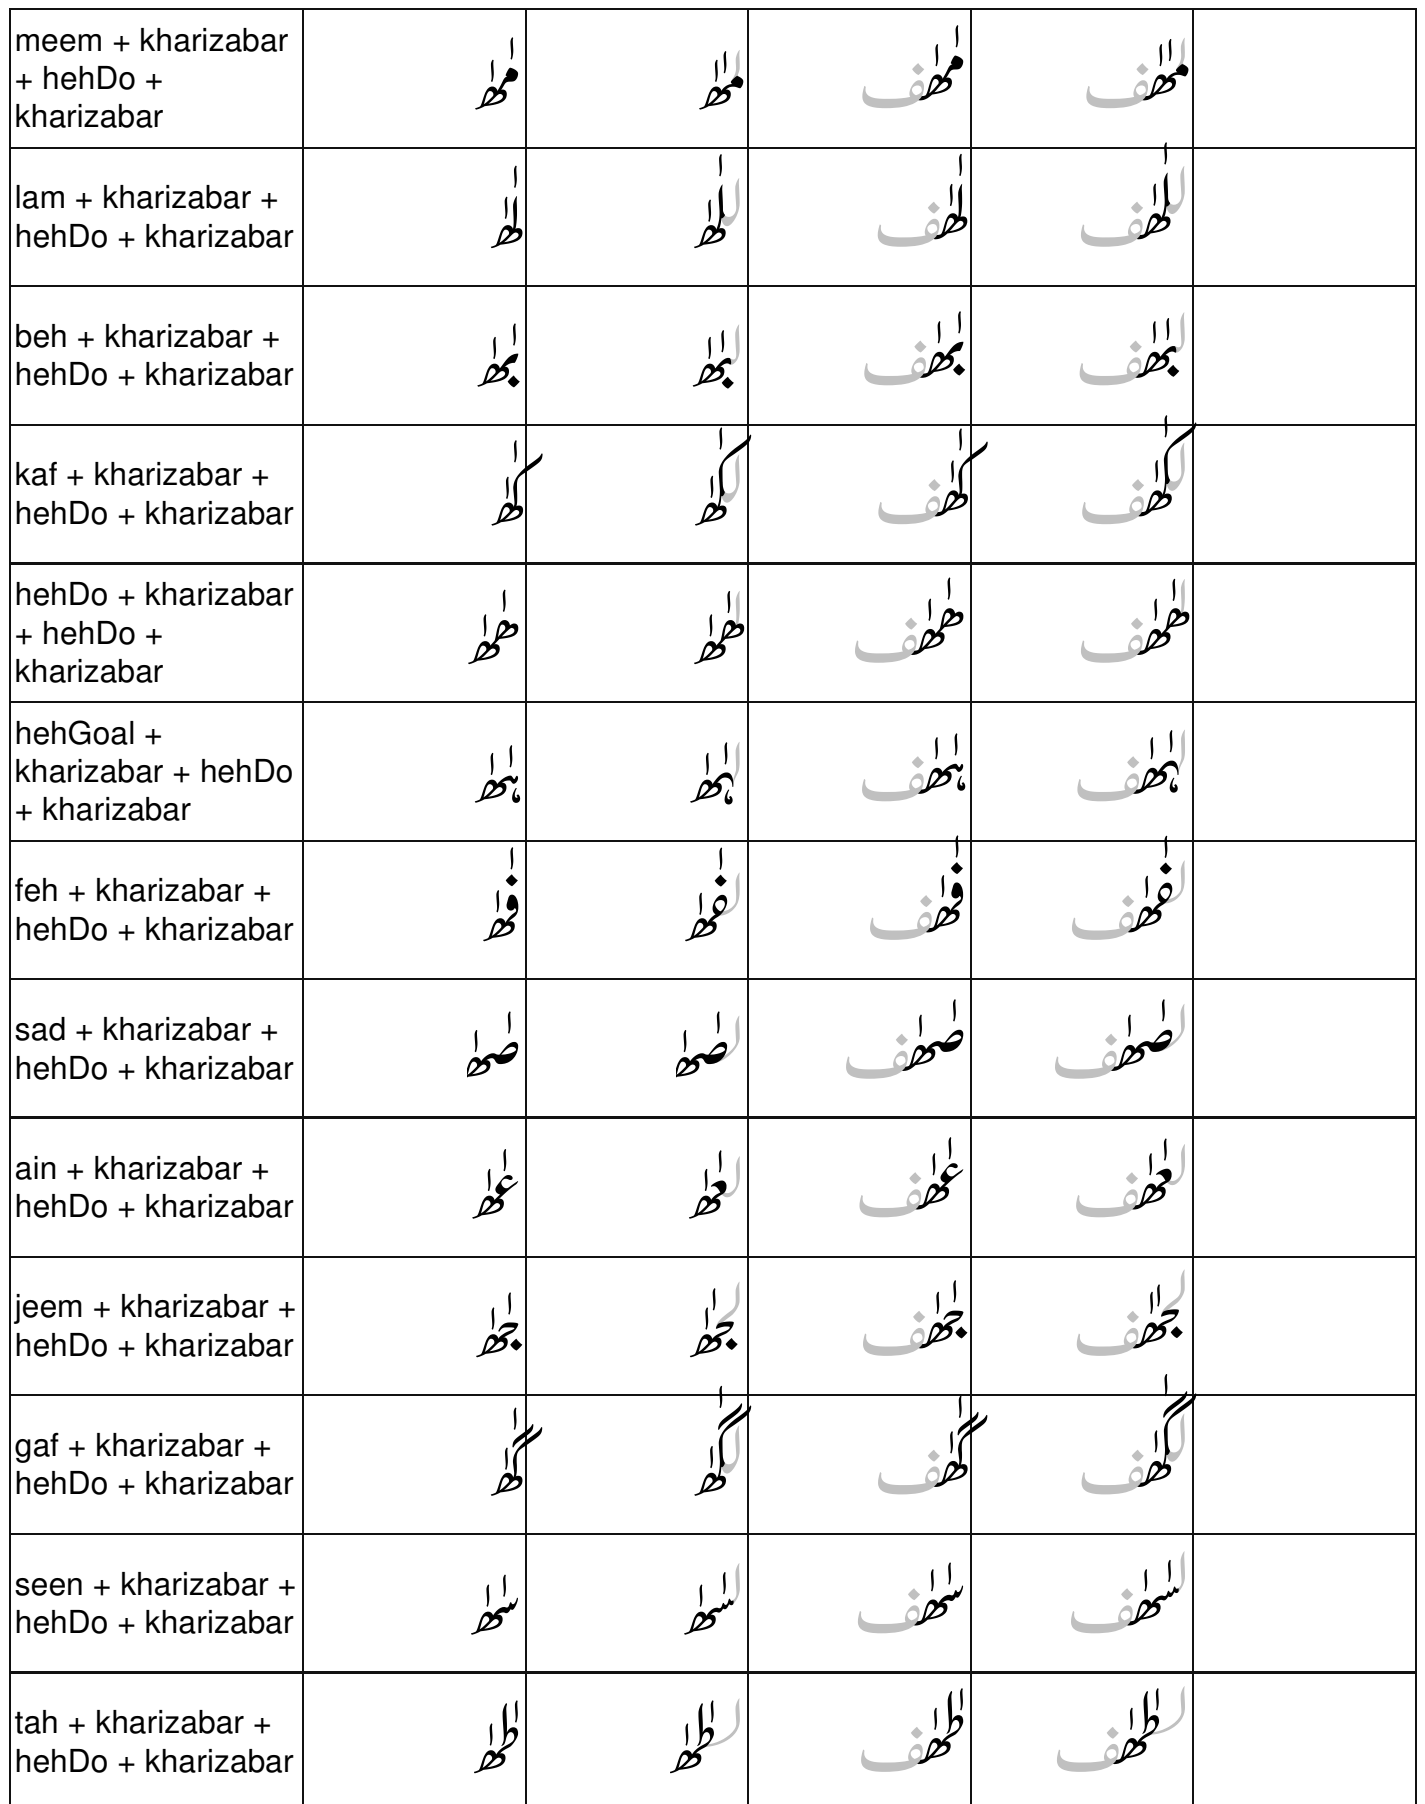 meem + kharizabar
+ hehDo +
kharizabar
مٰھٰ
لمٰھٰ
مٰھٰف
لمٰھٰف
lam + kharizabar +
hehDo + kharizabar
لٰھٰ
للٰھٰ
لٰھٰف
للٰھٰف
beh + kharizabar +
hehDo + kharizabar
بٰھٰ
لبٰھٰ
بٰھٰف
لبٰھٰف
kaf + kharizabar +
hehDo + kharizabar
کٰھٰ
لکٰھٰ
کٰھٰف
لکٰھٰف
hehDo + kharizabar
+ hehDo +
kharizabar
ھٰھٰ
لھٰھٰ
ھٰھٰف
لھٰھٰف
hehGoal +
kharizabar + hehDo
+ kharizabar
ہٰھٰ
لہٰھٰ
ہٰھٰف
لہٰھٰف
feh + kharizabar +
hehDo + kharizabar
فٰھٰ
لفٰھٰ
فٰھٰف
لفٰھٰف
sad + kharizabar +
hehDo + kharizabar
صٰھٰ
لصٰھٰ
صٰھٰف
لصٰھٰف
ain + kharizabar +
hehDo + kharizabar
عٰھٰ
لعٰھٰ
عٰھٰف
لعٰھٰف
jeem + kharizabar +
hehDo + kharizabar
جٰھٰ
لجٰھٰ
جٰھٰف
لجٰھٰف
gaf + kharizabar +
hehDo + kharizabar
گٰھٰ
لگٰھٰ
گٰھٰف
لگٰھٰف
seen + kharizabar +
hehDo + kharizabar
سٰھٰ
لسٰھٰ
سٰھٰف
لسٰھٰف
tah + kharizabar +
hehDo + kharizabar
طٰھٰ
لطٰھٰ
طٰھٰف
لطٰھٰف